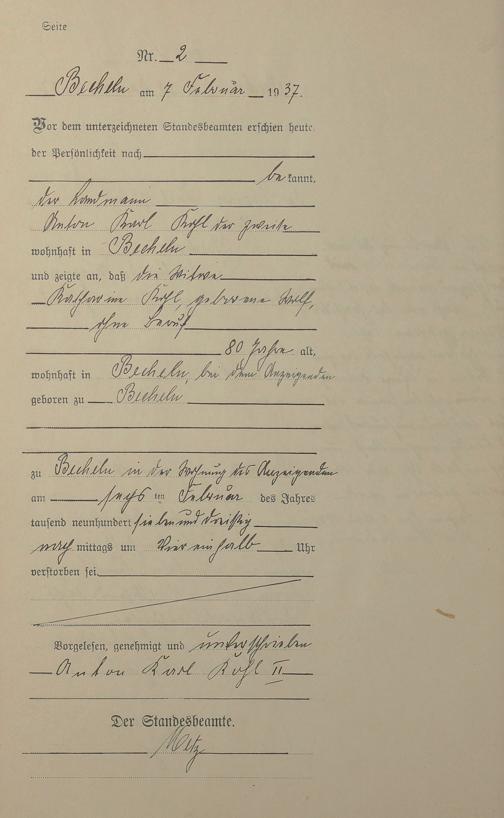 Seite
Nr. 2
Becheln am 7 Februar 1937.
Vor dem unterzeichneten Standesbeamten erschien heute,
der Persönlichkeit nach
bekannt,
der Landmann
Anton Karl Kohl der zweite
wohnhaft in Becheln
und zeigte an, daß die Witwe
Katharine Kohl, geborene Wolf,
ohne Beruf
80 Jahre alt,
wohnhaft in Becheln, bei dem Anzeigenden
geboren zu Becheln
zu Becheln in der Wohnung des Anzeigenden
am sechsten Februar des Jahres
tausend neunhundert sieben und dreißig
nachmittags um vier einhalb Uhr
verstorben sei.
Vorgelesen, genehmigt und unterschrieben
Anton Karl Kohl II
Der Standesbeamte.
Metz